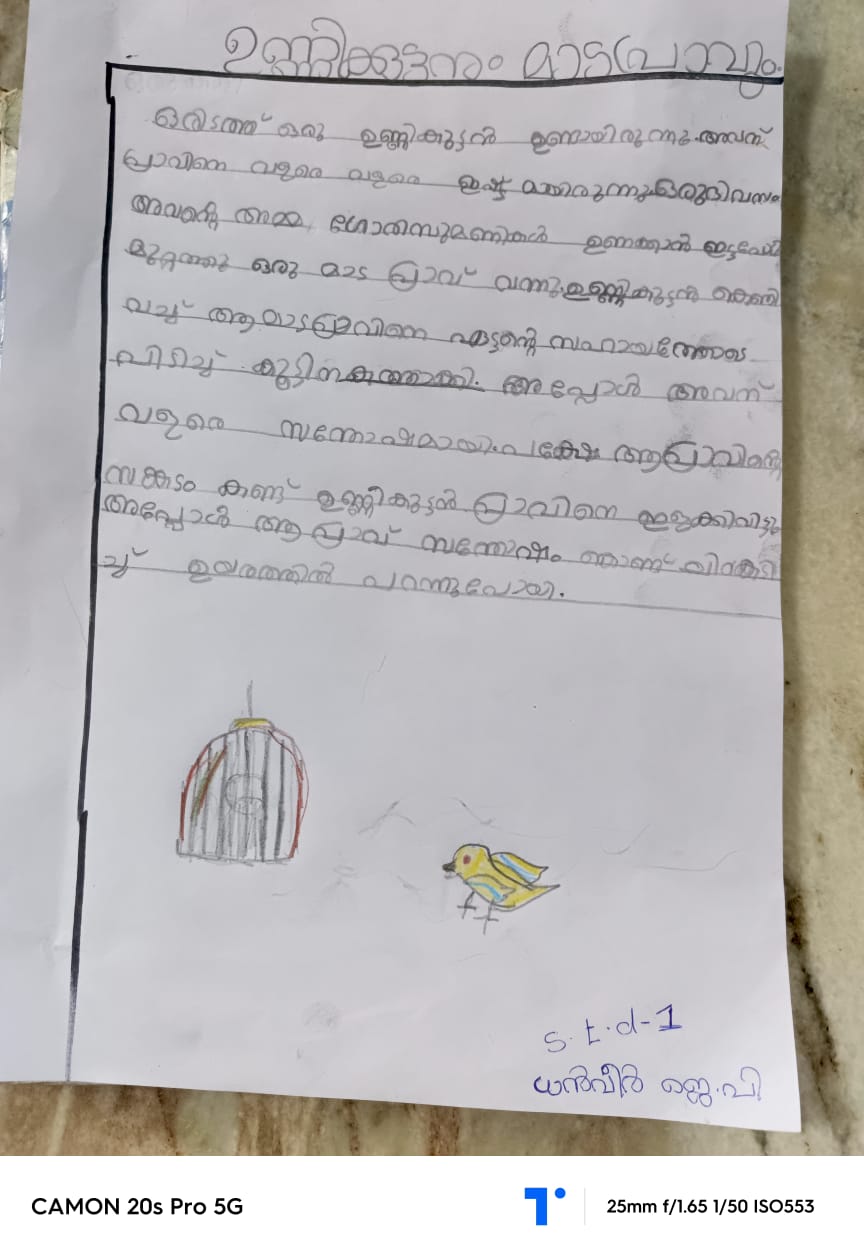 ഉണ്ണിക്കുട്ടനും മാടപ്രാവും.
ഒരിടത്ത് ഒരു ഉണ്ണികുട്ടൻ ഉണ്ടായിരുന്നു. അവന്
പ്രാവിനെ വളരെ വളരെ ഇഷ്ട മായിരുന്നു ഒരുദിവസം
അവന്റെ അമ്മ, ഗോതമ്പുമണികൾ ഉണക്കാൻ ഇട്ടപ്പോൾ
മുറ്റത്തു ഒരു മാട പ്രാവ് വന്നു. ഉണ്ണികുട്ടൻ കെണി
വച്ച് ആ മാടപ്രാവിനെ ഏട്ടന്റെ സഹായത്തോടെ
പിടിച്ച് കൂട്ടിനകത്താക്കി. അപ്പോൾ അവന്
വളരെ സന്തോഷമായി. പക്ഷേ ആപ്രാവിന്റെ
സങ്കടം കണ്ട് ഉണ്ണികുട്ടൻ പ്രാവിനെ ഇളക്കിവിട്ടു
അപ്പോൾ ആ പ്രാവ് സന്തോഷം കൊണ്ട് ചിറകടി
ച്ച് ഉയരത്തിൽ പറന്നുപോയി.
s.t.d-1
ധൻവീർ ജെ.പി
CAMON 20s Pro 5G
25mm f/1.65 1/50 ISO553